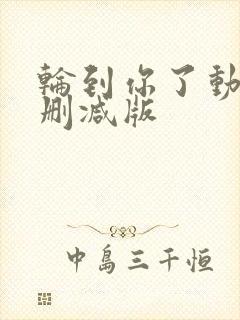 輪到你了動
刪減版
中島三千恒